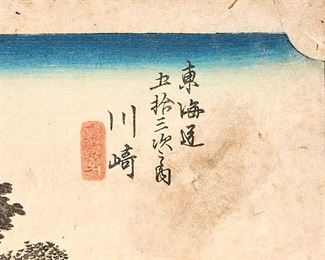 東海道
五拾三次之内
川崎